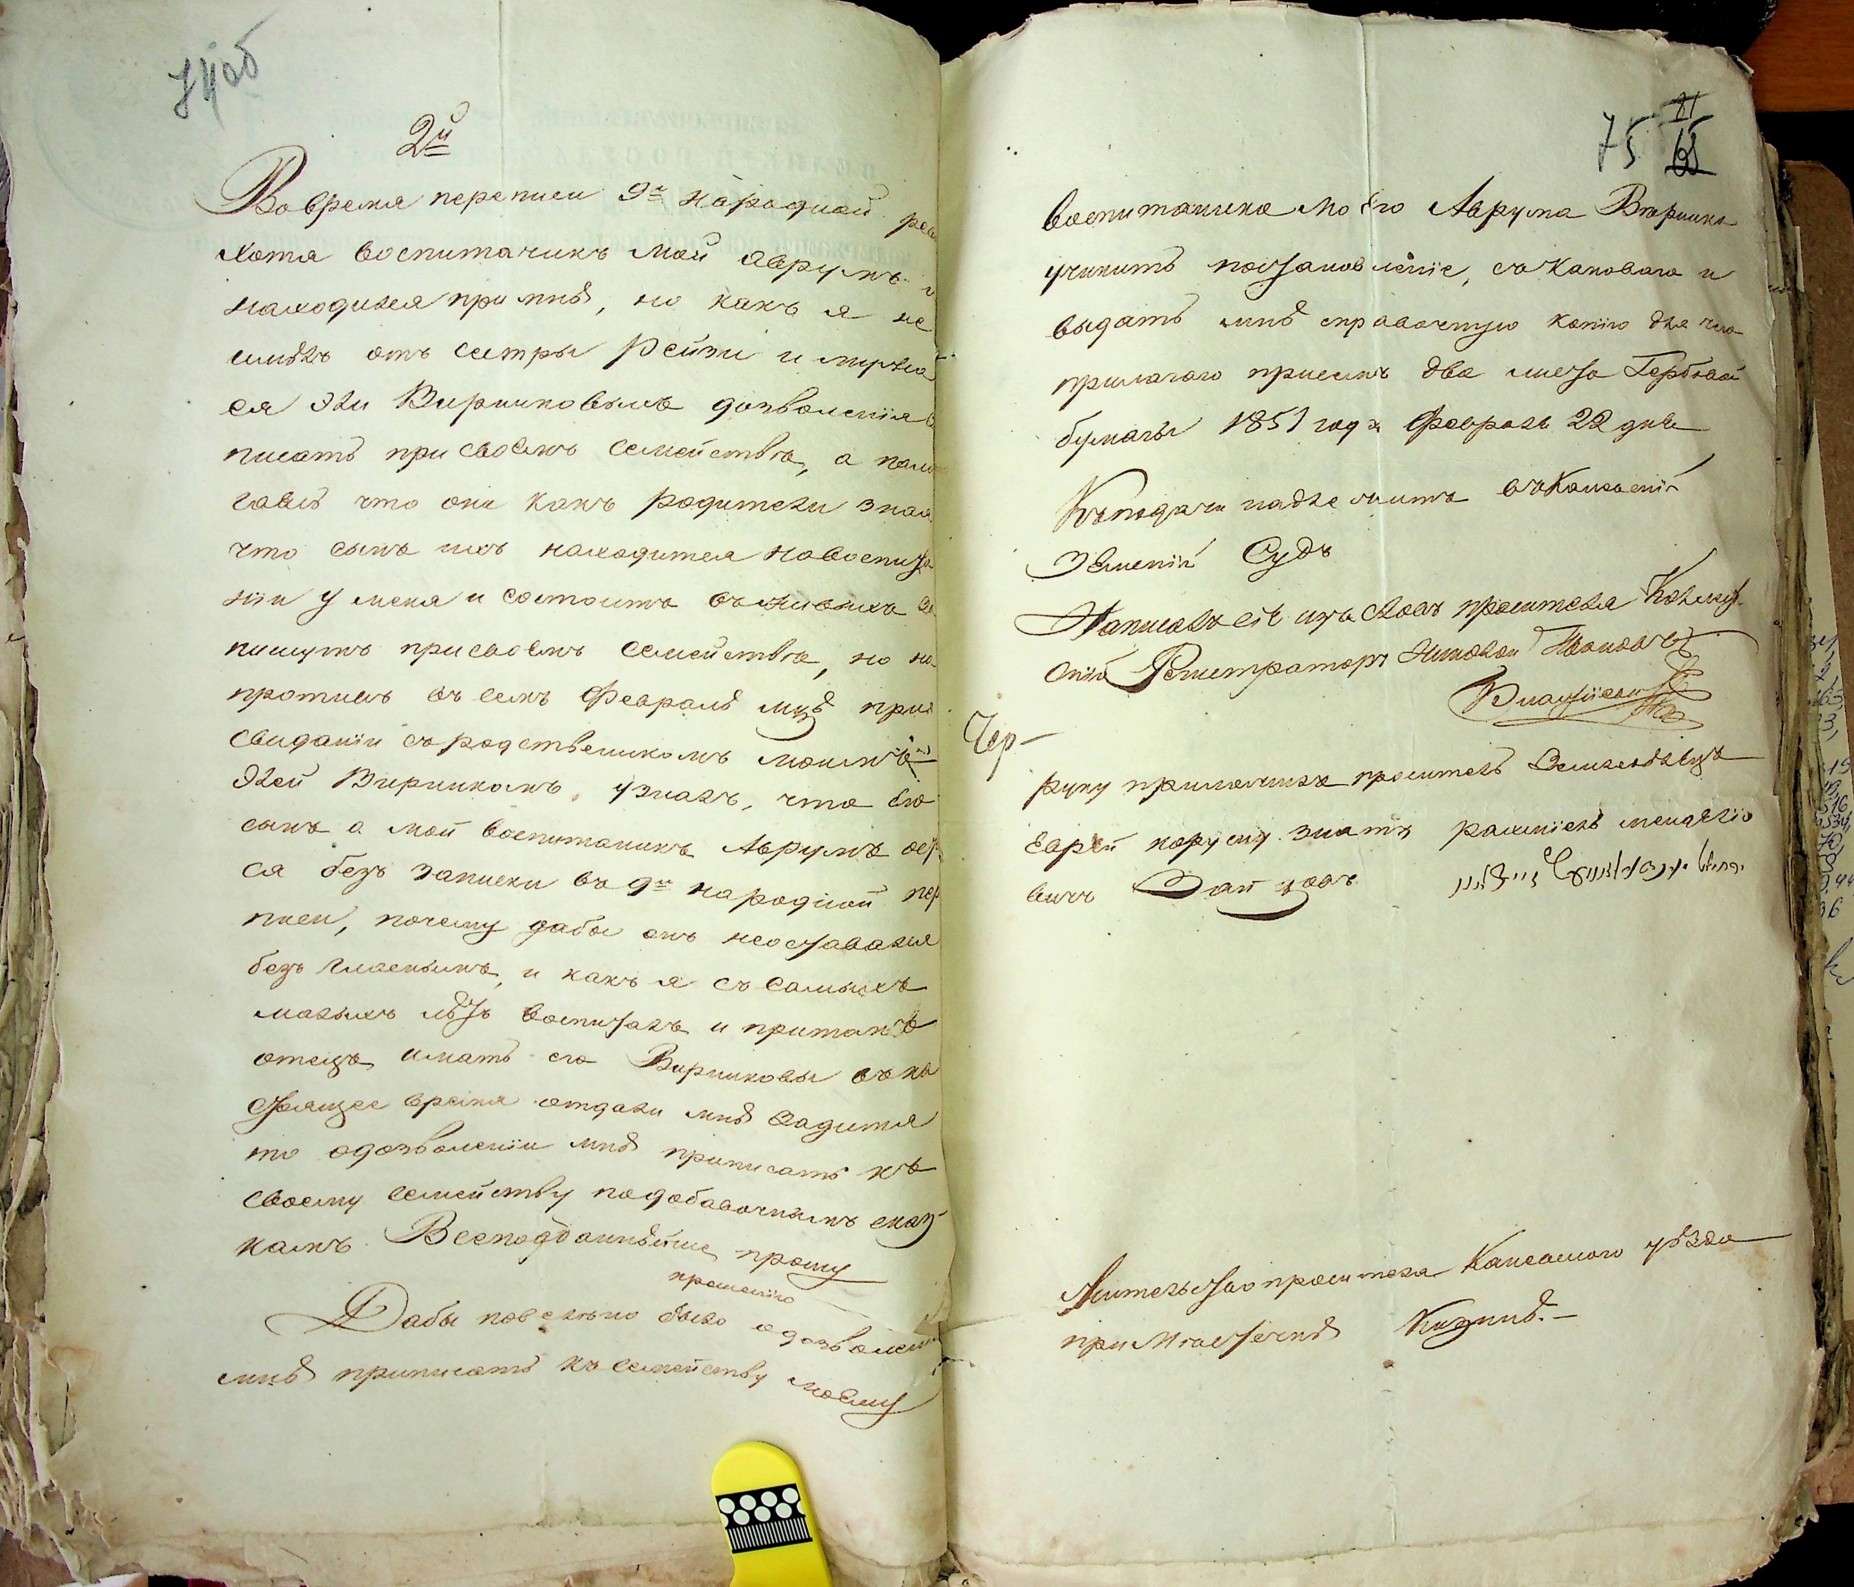 74об
2й
Вовремя переписи 9й народной рев
хотя воспитаникъ мой Аврумъ и
находился при мнѣ, но какъ я не
имѣлъ отъ сестры Рейзи и мужа
ея Эли Виришковыхъ дозволенія за
писать при своемъ семействѣ, а пола
галъ что они какъ родители зная
что сынъ ихъ находится навоспита
ніи у меня и состоитъ въ живыхъ за
пишутъ присвоемъ семействѣ, но на
противъ въ семъ Февралѣ мцѣ при
свиданіи съ родственикомъ моимъ
Элей Виришкомъ, узналъ, что его
сынъ а мой воспитаникъ Аврумъ ост
ся безъ записки въ 9ю народной пере
писи, почему дабы онъ неоставался
безъ гласнымъ, и какъ я съ самыхъ
малыхъ лѣтъ воспиталъ и притомъ
отецъ имать его Виришковы въ на
стоящее время отдали мнѣ задитя
то одозволеніи мнѣ приписать къ
своему семейству подобавочнымъ сказ
камъ Всеподданнѣйше прошу
прошенію
Дабы повелѣно было одозволен
мнѣ приписать къ семейству моему
75 81
65
воспитаника моего Аврума Виришка
учинить постановленіе, съ каковаго и
выдать мнѣ справочную копію для чего
прилагаю присемъ два листа Гербовой
бумаги 1851 года Февраль 22 дня
Къ подачи надлежитъ въ
Земскій Судъ
Написалъ сіе изъ словъ просителя Коллеж
скій Регистраторъ Николай
Чер-
руку приложилъ проситель Земледѣлецъ
Еврей
вичъ
Жительство просителя уѣзда
при Местечкѣ